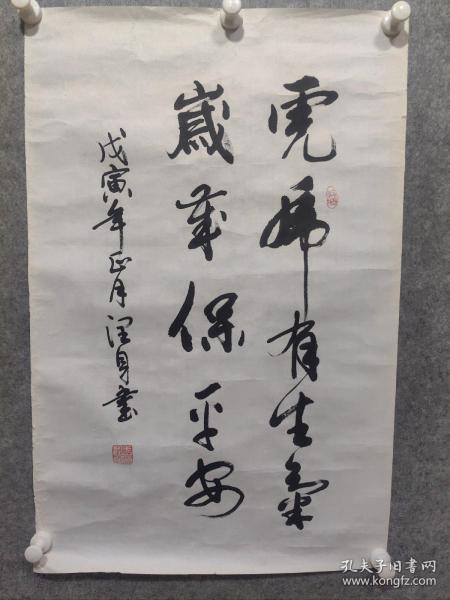 虎虎有生氣
歲歲保平安
戊寅年正月潤身書
孔夫子旧书网
www.kongfz.com